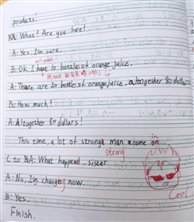 products.
BA: What? Are you sure?
A: Yes. I'm sure.
B: Ok, I have 10 bottles of orange juice.
A: There are 20 bottles of orange juice, altogether 80 dollars
B: How much!
A: Altogether 80 dollars!
This time, a lot of strong man come on
strong
C to BA: What happened, sister
A: No, I'm now.
B: Yes.
Finish.